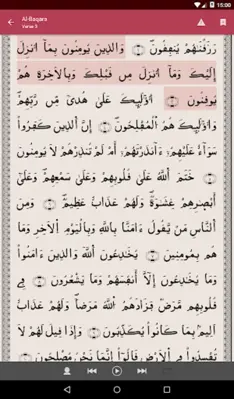 15:00
Al-Baqara
Verse 3
رَزَقْنَٰهُمْ يُنفِقُونَ ۝ وَالَّذِينَ يُؤْمِنُونَ بِمَآ أُنزِلَ
إِلَيْكَ وَمَآ أُنزِلَ مِن قَبْلِكَ وَبِالْأَخِرَةِ هُمْ
يُوقِنُونَ ۝ أُوْلَٰٓئِكَ عَلَىٰ هُدًى مِّن رَّبِّهِمْ
وَأُوْلَٰٓئِكَ هُمُ الْمُفْلِحُونَ ۝ إِنَّ الَّذِينَ كَفَرُواْ
سَوَآءٌ عَلَيْهِمْ ءَأَنذَرْتَهُمْ أَمْ لَمْ تُنذِرْهُمْ لَا يُؤْمِنُونَ
۝ خَتَمَ اللَّهُ عَلَىٰ قُلُوبِهِمْ وَعَلَىٰ سَمْعِهِمْ وَعَلَىٰٓ
أَبْصَٰرِهِمْ غِشَٰوَةٌ وَلَهُمْ عَذَابٌ عَظِيمٌ ۝ وَمِنَ
النَّاسِ مَن يَقُولُ ءَامَنَّا بِاللَّهِ وَبِالْيَوْمِ الْأَخِرِ وَمَا
هُم بِمُؤْمِنِينَ ۝ يُخَٰدِعُونَ اللَّهَ وَالَّذِينَ ءَامَنُواْ
وَمَا يَخْدَعُونَ إِلَّآ أَنفُسَهُمْ وَمَا يَشْعُرُونَ ۝ فِى
قُلُوبِهِم مَّرَضٌ فَزَادَهُمُ اللَّهُ مَرَضًا وَلَهُمْ عَذَابٌ
أَلِيمٌۢ بِمَا كَانُواْ يَكْذِبُونَ ۝ وَإِذَا قِيلَ لَهُمْ لَا
تُفْسِدُواْ فِى الْأَرْضِ قَالُوٓاْ إِنَّمَا نَحْنُ مُصْلِحُونَ